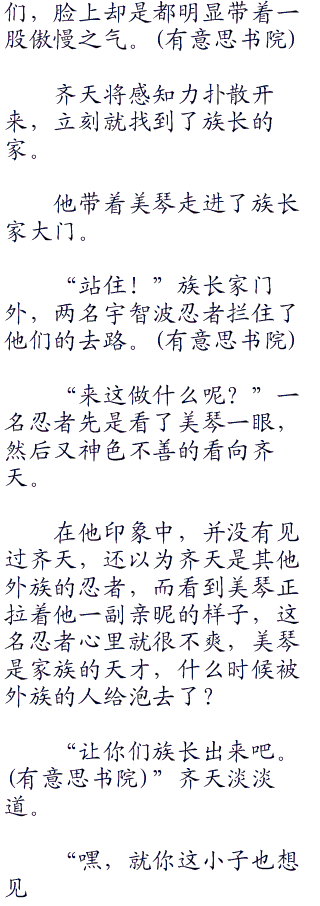 们，脸上却是都明显带着一
股傲慢之气。(有意思书院)
齐天将感知力扑散开
来，立刻就找到了族长的
家。
他带着美琴走进了族长
家大门。
“站住！”族长家门
外，两名宇智波忍者拦住了
他们的去路。(有意思书院)
“来这做什么呢？”一
名忍者先是看了美琴一眼，
然后又神色不善的看向齐
天。
在他印象中，并没有见
过齐天，还以为齐天是其他
外族的忍者，而看到美琴正
拉着他一副亲昵的样子，这
名忍者心里就很不爽，美琴
是家族的天才，什么时候被
外族的人给泡去了？
“让你们族长出来吧。
(有意思书院)”齐天淡淡
道。
“嘿，就你这小子也想
见